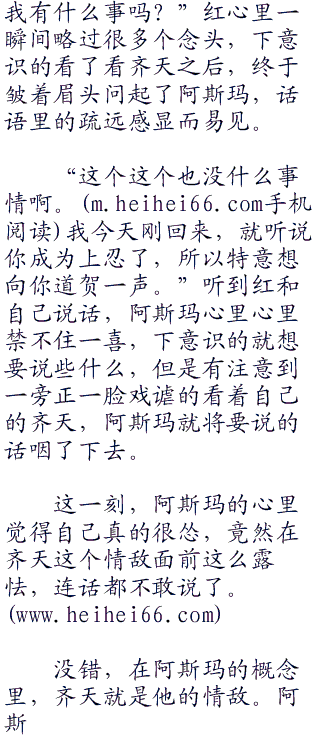 我有什么事吗？”红心里一
瞬间略过很多个念头，下意
识的看了看齐天之后，终于
皱着眉头问起了阿斯玛，话
语里的疏远感显而易见。
“这个这个也没什么事
情啊。(m.heihei66.com手机
阅读)我今天刚回来，就听说
你成为上忍了，所以特意想
向你道贺一声。”听到红和
自己说话，阿斯玛心里心里
禁不住一喜，下意识的就想
要说些什么，但是有注意到
一旁正一脸戏谑的看着自己
的齐天，阿斯玛就将要说的
话咽了下去。
这一刻，阿斯玛的心里
觉得自己真的很怂，竟然在
齐天这个情敌面前这么露
怯，连话都不敢说了。
(www.heihei66.com)
没错，在阿斯玛的概念
里，齐天就是他的情敌。阿
斯